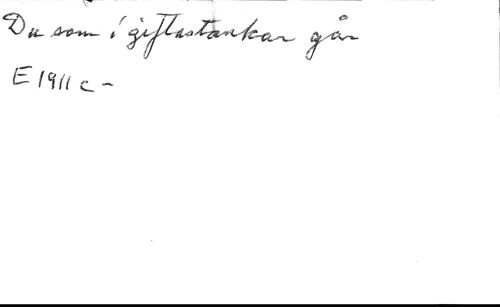 Du som i giftastankar går
E 1911 c -